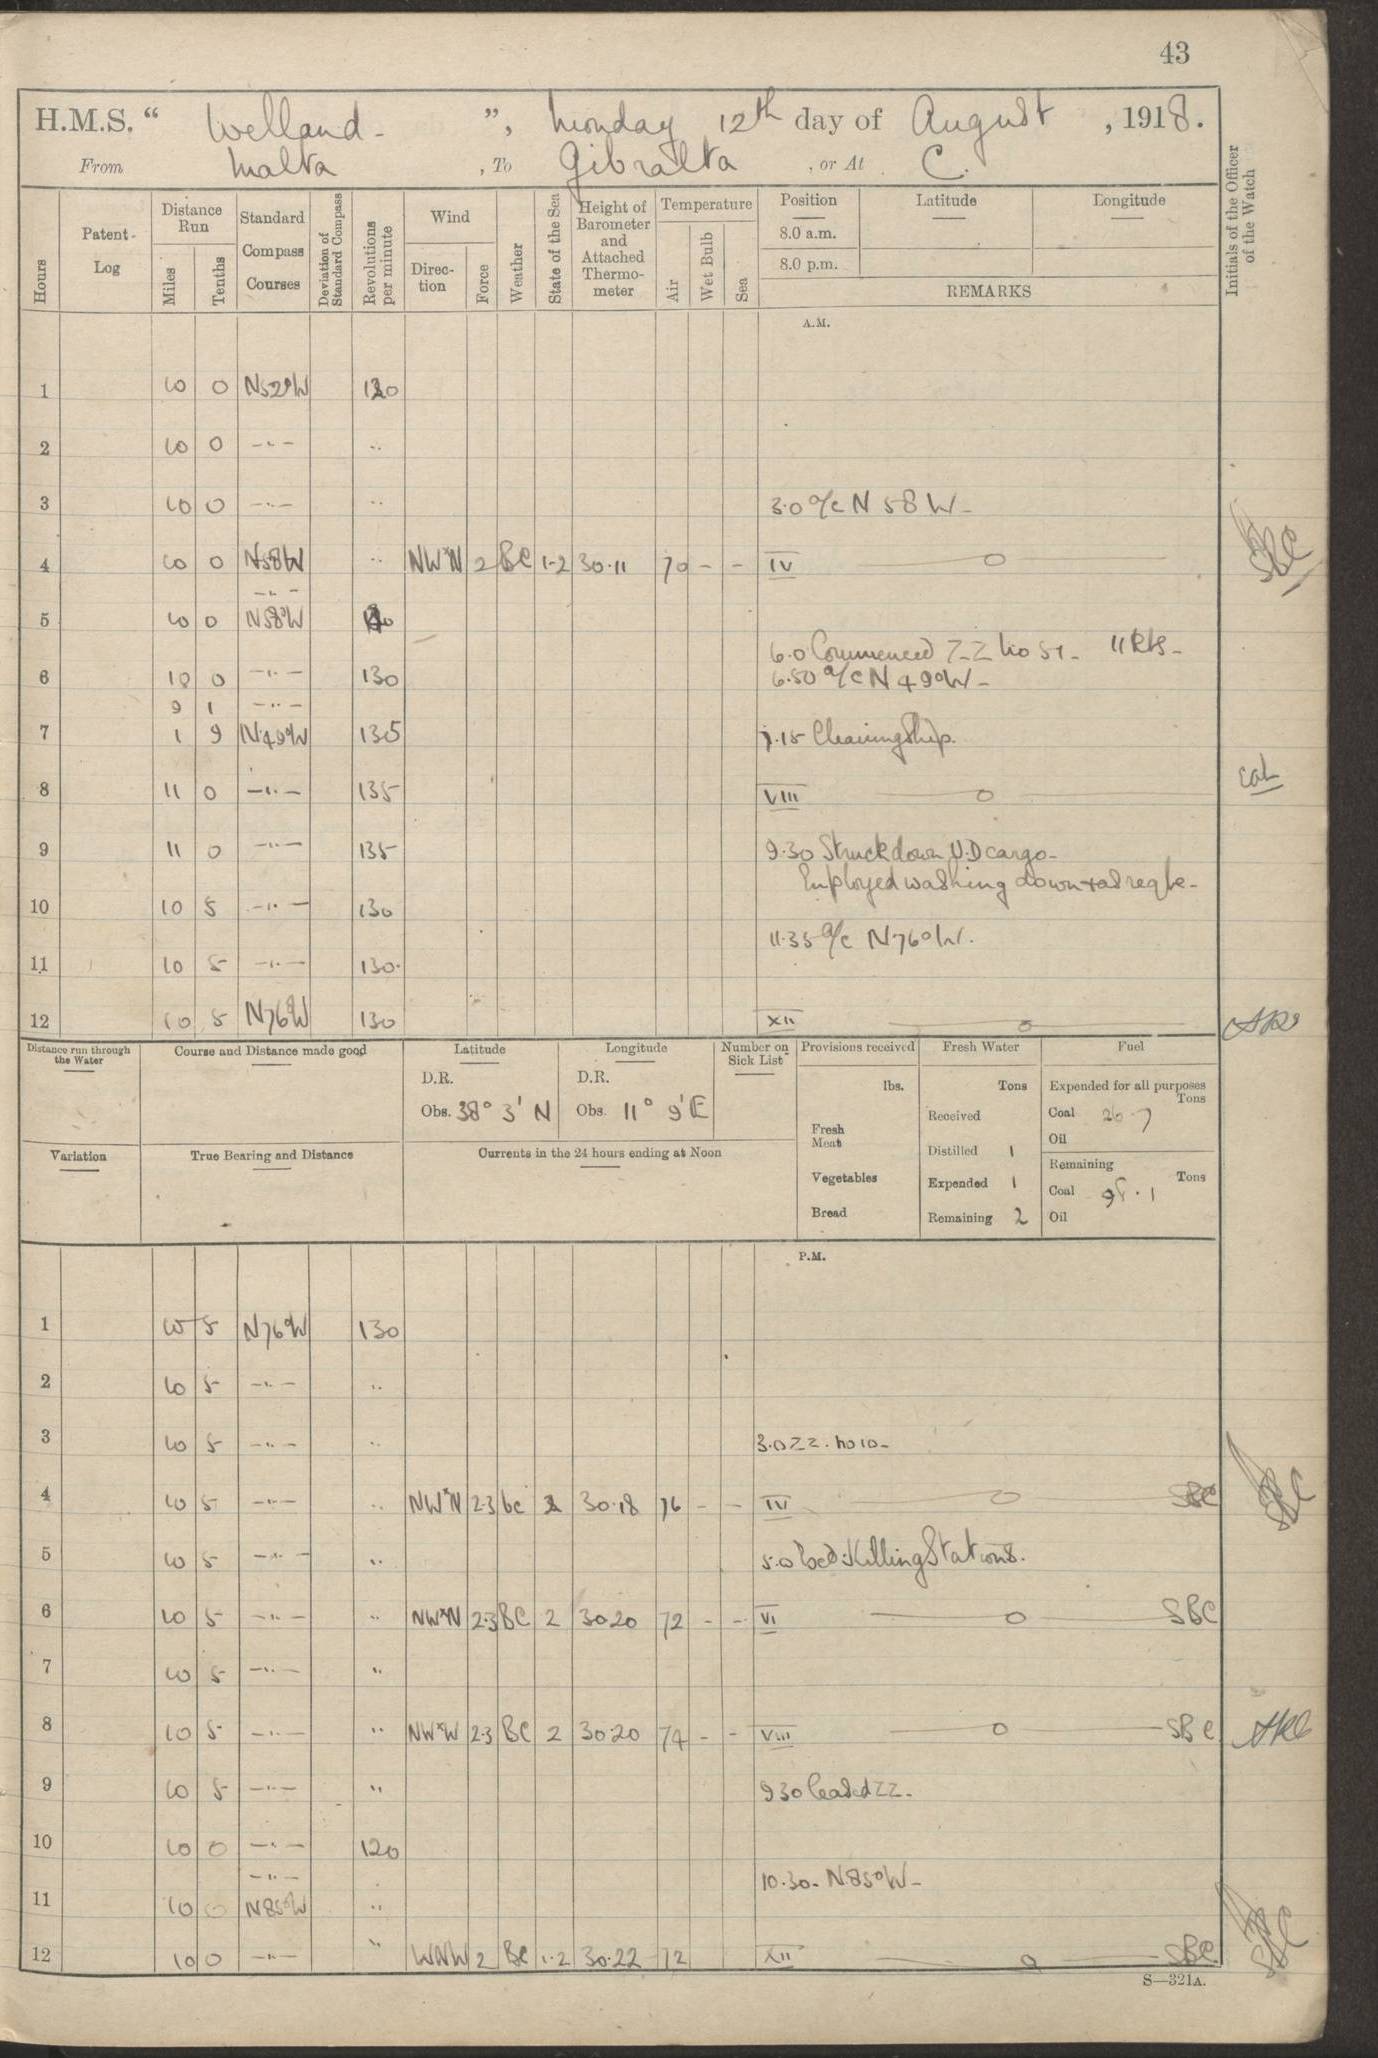 43
H.M.S. “ Welland - ”, Monday 12th day of August , 1918.
From Malta , To Gibralta , or At C.
Hours
Patent Log
Distance Run
Miles
Tenths
Standard Compass Courses
Deviation of Standard Compass
Revolutions per minute
Wind
Direction
Force
Weather
State of the Sea
Height of Barometer and Attached Thermometer
Temperature
Air
Wet Bulb
Sea
Position
8.0 a.m.
8.0 p.m.
Latitude
Longitude
REMARKS
Initials of the Officer of the Watch
A.M.
1 10 0 N52°W 120
2 10 0 -"- "
3 10 0 -"- " 3.0 a/c N 58 W -
4 10 0 N58W " NW'N 2 BC 1-2 30.11 70 - - IV SBC
-"-
5 10 0 N58°W
6.0 Commenced ZZ No 51 - 11 Kts -
6 10 0 -"- 130 6.50 a/c N 49°W -
9 1 -"-
7 1 9 N49°W 135 7.15 Cleaning Ship.
8 11 0 -"- 135 VIII
9 11 0 -"- 135 9.30 Struck down U.D cargo -
Employed washing down + as reqte -
10 10 5 -"- 130
11.35 a/c N76°W.
11 10 5 -"- 130
12 10 5 N76°W 130 XII
Distance run through the Water
Course and Distance made good
Latitude
D.R.
Obs. 38° 3' N
Longitude
D.R.
Obs. 11° 9' E
Number on Sick List
Provisions received
lbs.
Fresh Meat
Vegetables
Bread
Fresh Water
Tons
Received
Distilled 1
Expended 1
Remaining 2
Fuel
Expended for all purposes
Tons
Coal 26.7
Oil
Remaining
Tons
Coal 98.1
Oil
Variation
True Bearing and Distance
Currents in the 24 hours ending at Noon
P.M.
1 10 5 N76°W 130
2 10 5 -"- "
3 10 5 -"- " 3.0 ZZ. No 10 -
4 10 5 -"- " NW'N 2.3 bc 2 30.18 76 - - IV SBC
5 10 5 -"- " 5.0 Killing Stations.
6 10 5 -"- " NW'N 2.3 BC 2 30.20 72 - - VI SBC
7 10 5 -"- "
8 10 5 -"- " NW'W 2.3 BC 2 30.20 74 - - VIII SBC
9 10 5 -"- " 9.30 Ceased ZZ.
10 10 0 -"- 120
-"- 10.30 - N85°W -
11 10 0 N85°W "
12 10 0 -"- " WNW 2 BC 1.2 30.22 72 XII SBC
S—321A.